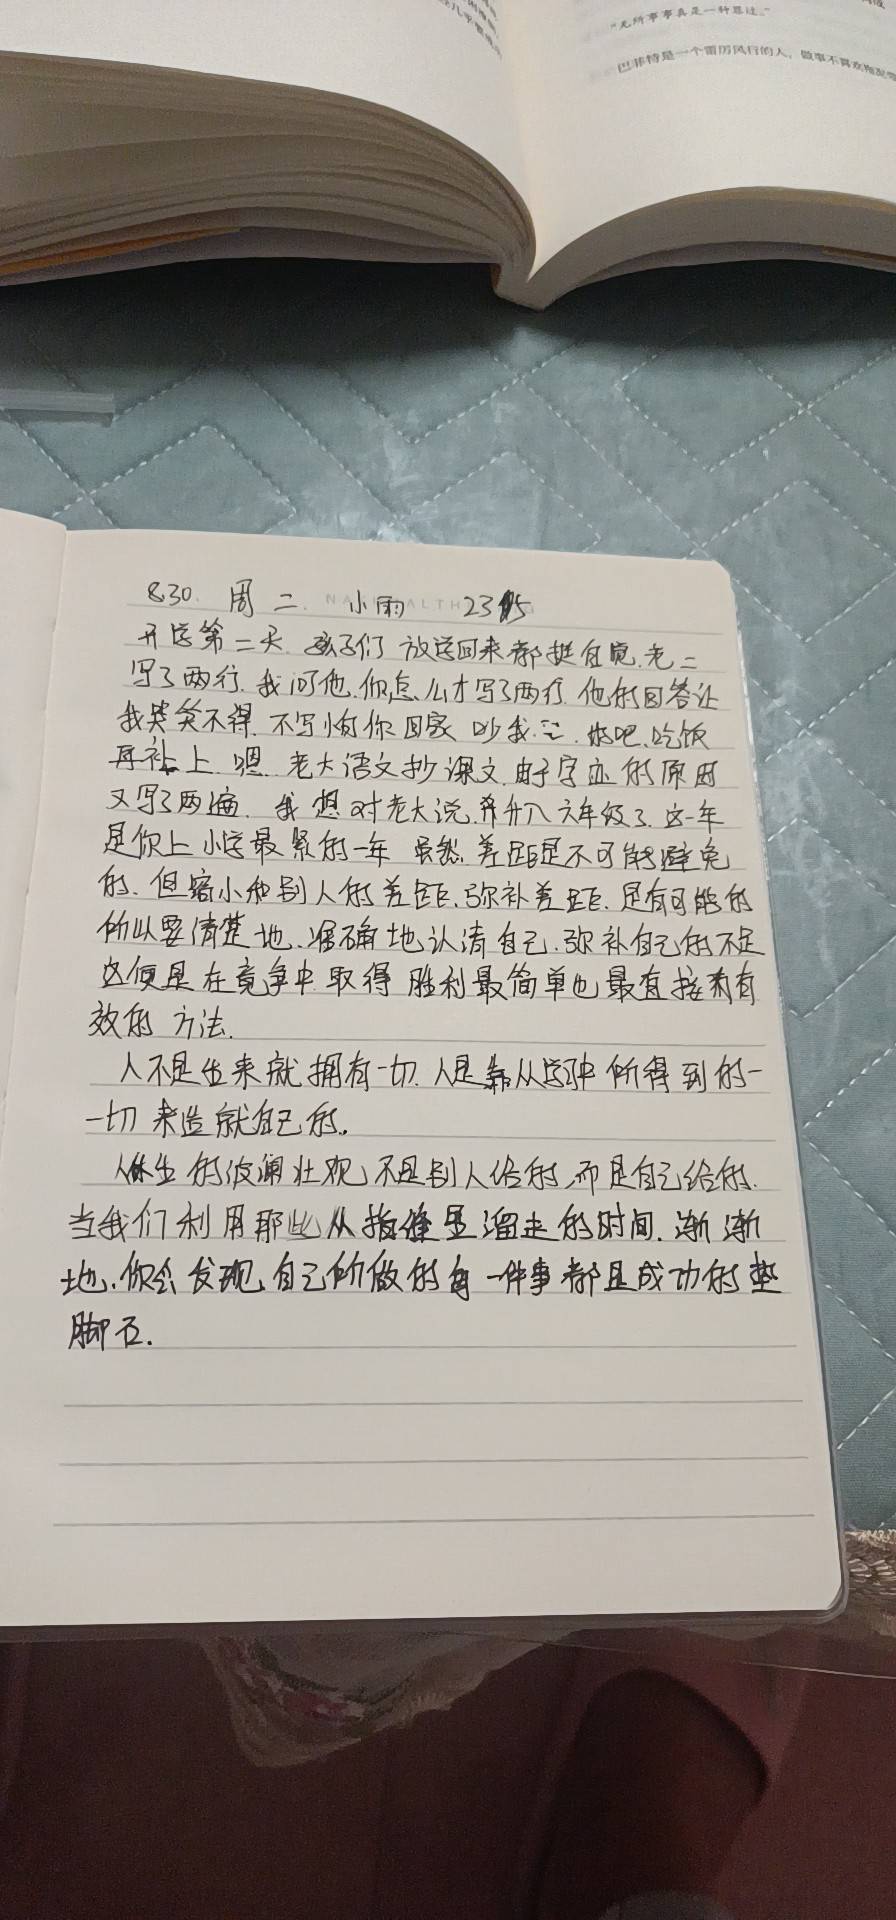 "无所事事真是一种罪过。"
巴菲特是一个雷厉风行的人，做事不喜欢拖泥
8.30. 周二. 小雨 23
开学第二天. 孩子们 放学回来都挺自觉. 老二
写了两行. 我问他. 你怎么才写了两行. 他的回答让
我哭笑不得. 不写怕你回家 吵我. 好吧. 吃饭
再补上. 嗯. 老大语文抄课文. 由于字迹的原因
又写了两遍. 我想对老大说. 升入六年级了. 这一年
是你上小学最紧的一年 虽然 差距是不可能避免
的. 但缩小和别人的差距. 弥补差距. 是有可能的
所以要清楚地. 准确地认清自己. 弥补自己的不足
这便是在竟争中取得 胜利最简单也最直接有
效的方法.
人不是生来就拥有一切. 人是靠从学习中所得到的一
一切来造就自己的.
人生的波澜壮观, 不是别人给的, 而是自己给的.
当我们利用那些从指缝里溜走的时间. 渐渐
地. 你会发现自己所做的每一件事都是成功的垫
脚石.